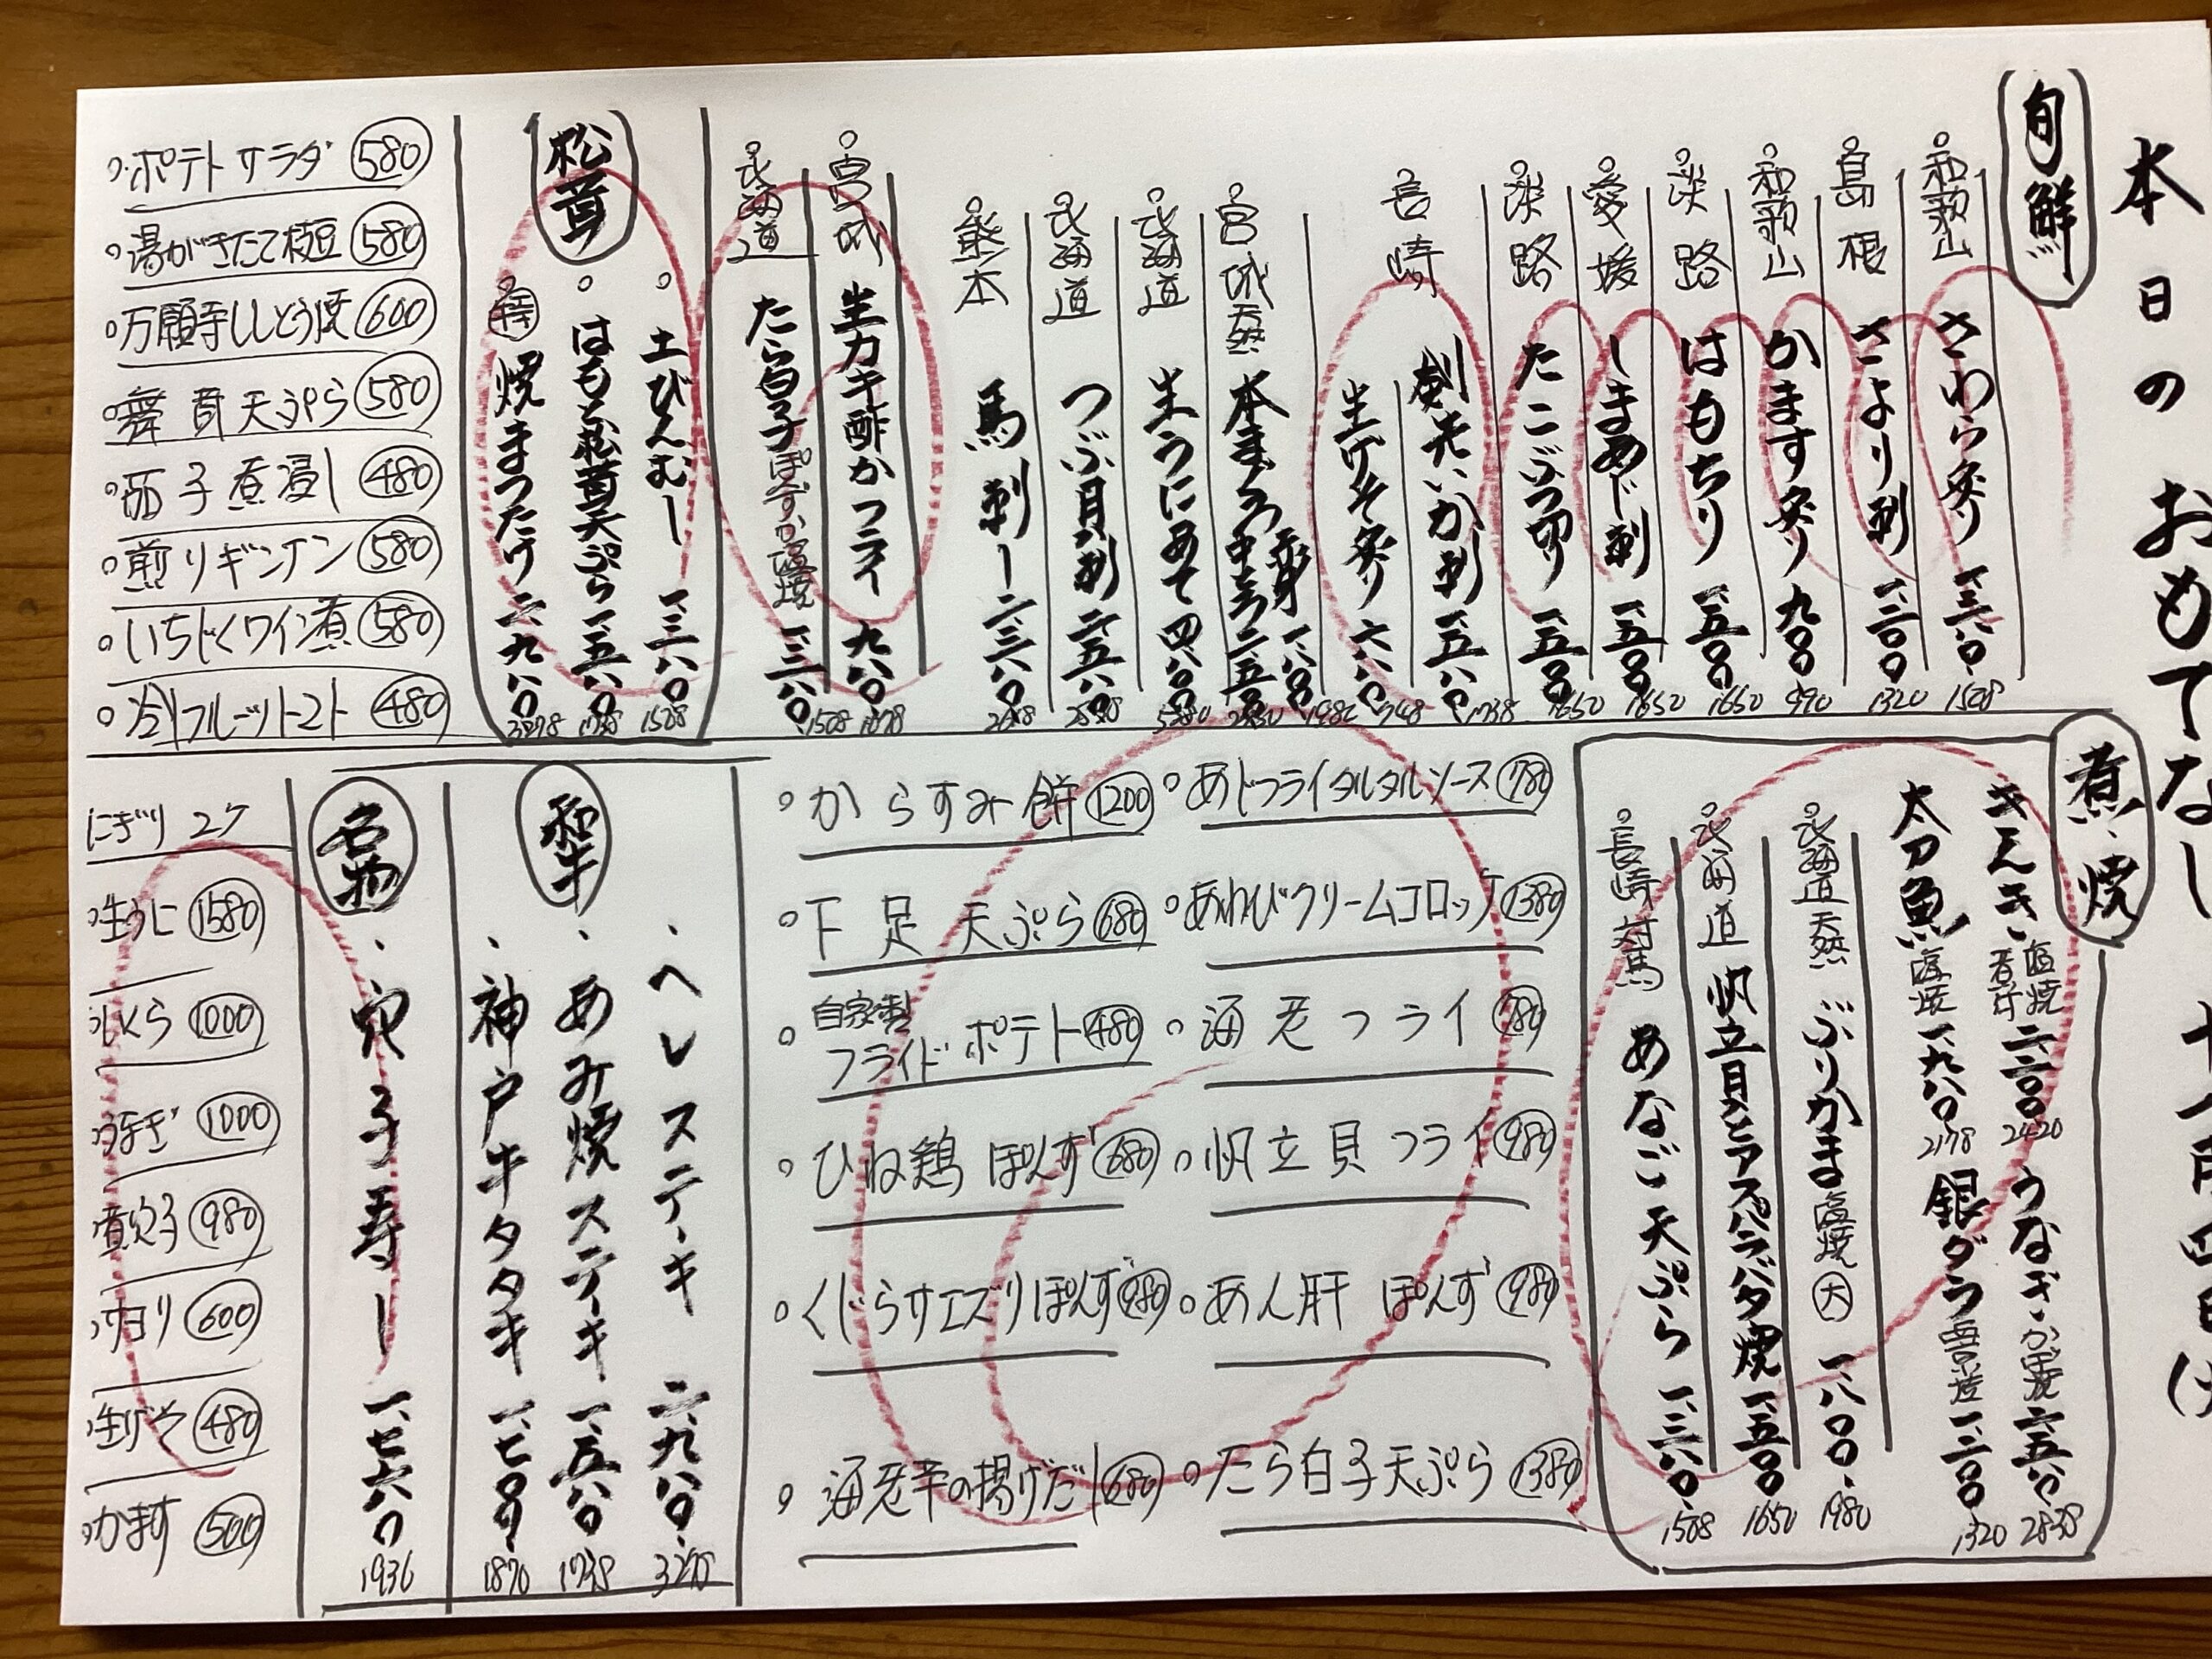 本日のおもてなし
旬鮮
和歌山 さわら炙り 一、三八〇 1508
島根 さより刺 一、二〇〇 1320
和歌山 かます炙り 九〇〇 990
淡路 はもちり 一、五〇〇 1650
愛媛 しまあじ刺 一、五〇〇 1650
淡路 たこぶつ切り 一、五〇〇 1650
長崎 剣先いか刺 一、五八〇 1738
生げそ炙り 六八〇 748
宮城 天然 本まぐろ 赤身 一、八〇〇 1980
中とろ 二、五八〇
北海道 生うにあて 四、八〇〇
北海道 つぶ貝刺 二、五八〇
熊本 馬刺し 二、三八〇
宮城 生カキ酢かフライ 九八〇 1078
北海道 たら白子 ぽんずか塩焼 一、三八〇 1508
松茸
土びんむし 一、三八〇 1508
はもと松茸天ぷら 一、五八〇 1738
特 焼まつたけ 二、九八〇 3278
ポテトサラダ 580
湯がきたて枝豆 580
万願寺ししとう焼 600
舞茸天ぷら 580
茄子煮浸し 480
煎りギンナン 580
いちじくワイン煮 580
冷しフルーツトマト 480
煮、焼
きんき 塩焼 煮付 二、二〇〇 2420
うなぎ かば焼 二、五八〇 2838
太刀魚 塩焼 一、九八〇 2178
銀ダラ 西京焼 一、二〇〇 1320
北海道 天然 ぶりかま 塩焼 大 一、八〇〇 1980
北海道 帆立貝とアスパラバター焼 一、五〇〇 1650
長崎 対馬 あなご天ぷら 一、三八〇 1508
あじフライタルタルソース 780
あわびクリームコロッケ 1380
海老フライ 780
帆立貝フライ 980
あん肝ぽんず 980
たら白子天ぷら 1380
からすみ餅 1200
下足天ぷら 680
自家製
フライドポテト 480
ひね鶏ぽんず 680
くじらサエズリぽんず 980
海老芋の揚げだし 680
和牛
、ヘレステーキ 二、九八〇 3278
、あみ焼ステーキ 一、五八〇 1738
、神戸牛タタキ 一、七〇〇 1870
名物
、穴子寿し 一、七六〇 1936
にぎり 2ケ
生うに 1580
いくら 1000
うなぎ 1000
煮穴子 980
サヨリ 600
生げそ 480
かます 500